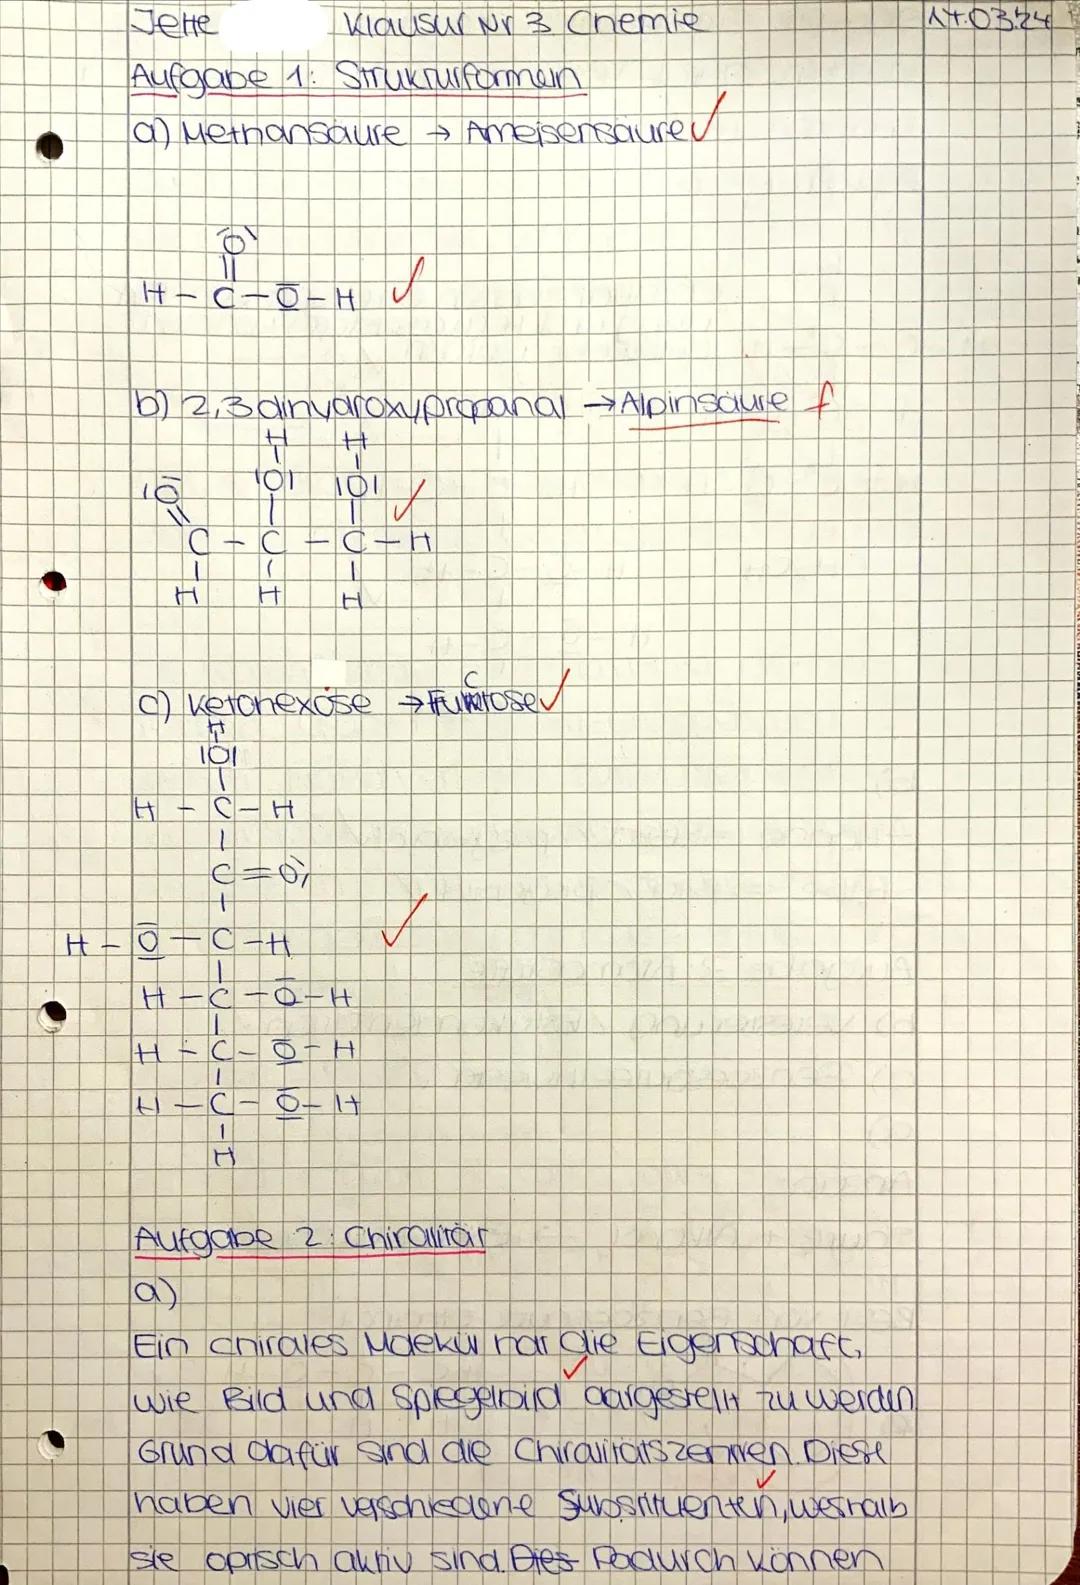 Jette Klausur Nr 3 Chemie 17.03.24
Aufgabe 1: Strukturformeln
a) Methansäure → Ameisensäure ✓
|O|
||
H – C – O – H ✓
b) 2,3 dihydroxypropanal → Alpinsäure f
H H
|O |O| |O| ✓
C – C – C – H
H H H
c) Ketohexose → Fucktose ✓
H
|O|
H – C – H
C = O
H – O – C – H ✓
H – C – O – H
H – C – O – H
H – C – O – H
H
Aufgabe 2: Chiralität
a)
Ein chirales Molekül hat die Eigenschaft,
wie Bild und Spiegelbild ✓ dargestellt zu werden.
Grund dafür sind die Chiralitätszentren. Diese
haben vier verschiedene Substituenten, ✓ weshalb
sie optisch aktiv sind. Dies Dadurch können